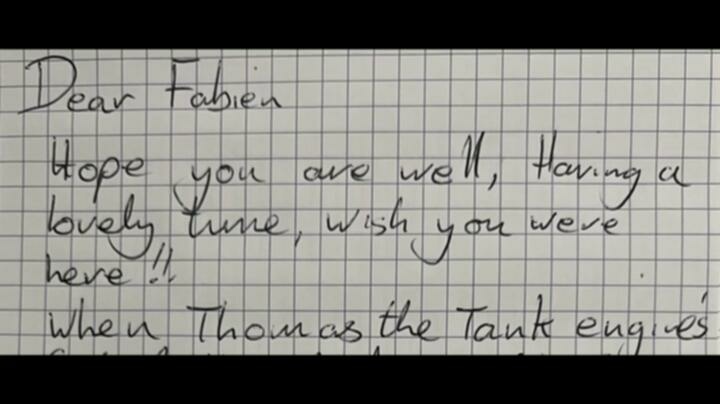 Dear Fabien
Hope you are well, Having a
lovely time, wish you were
here!!
When Thomas the Tank engine's